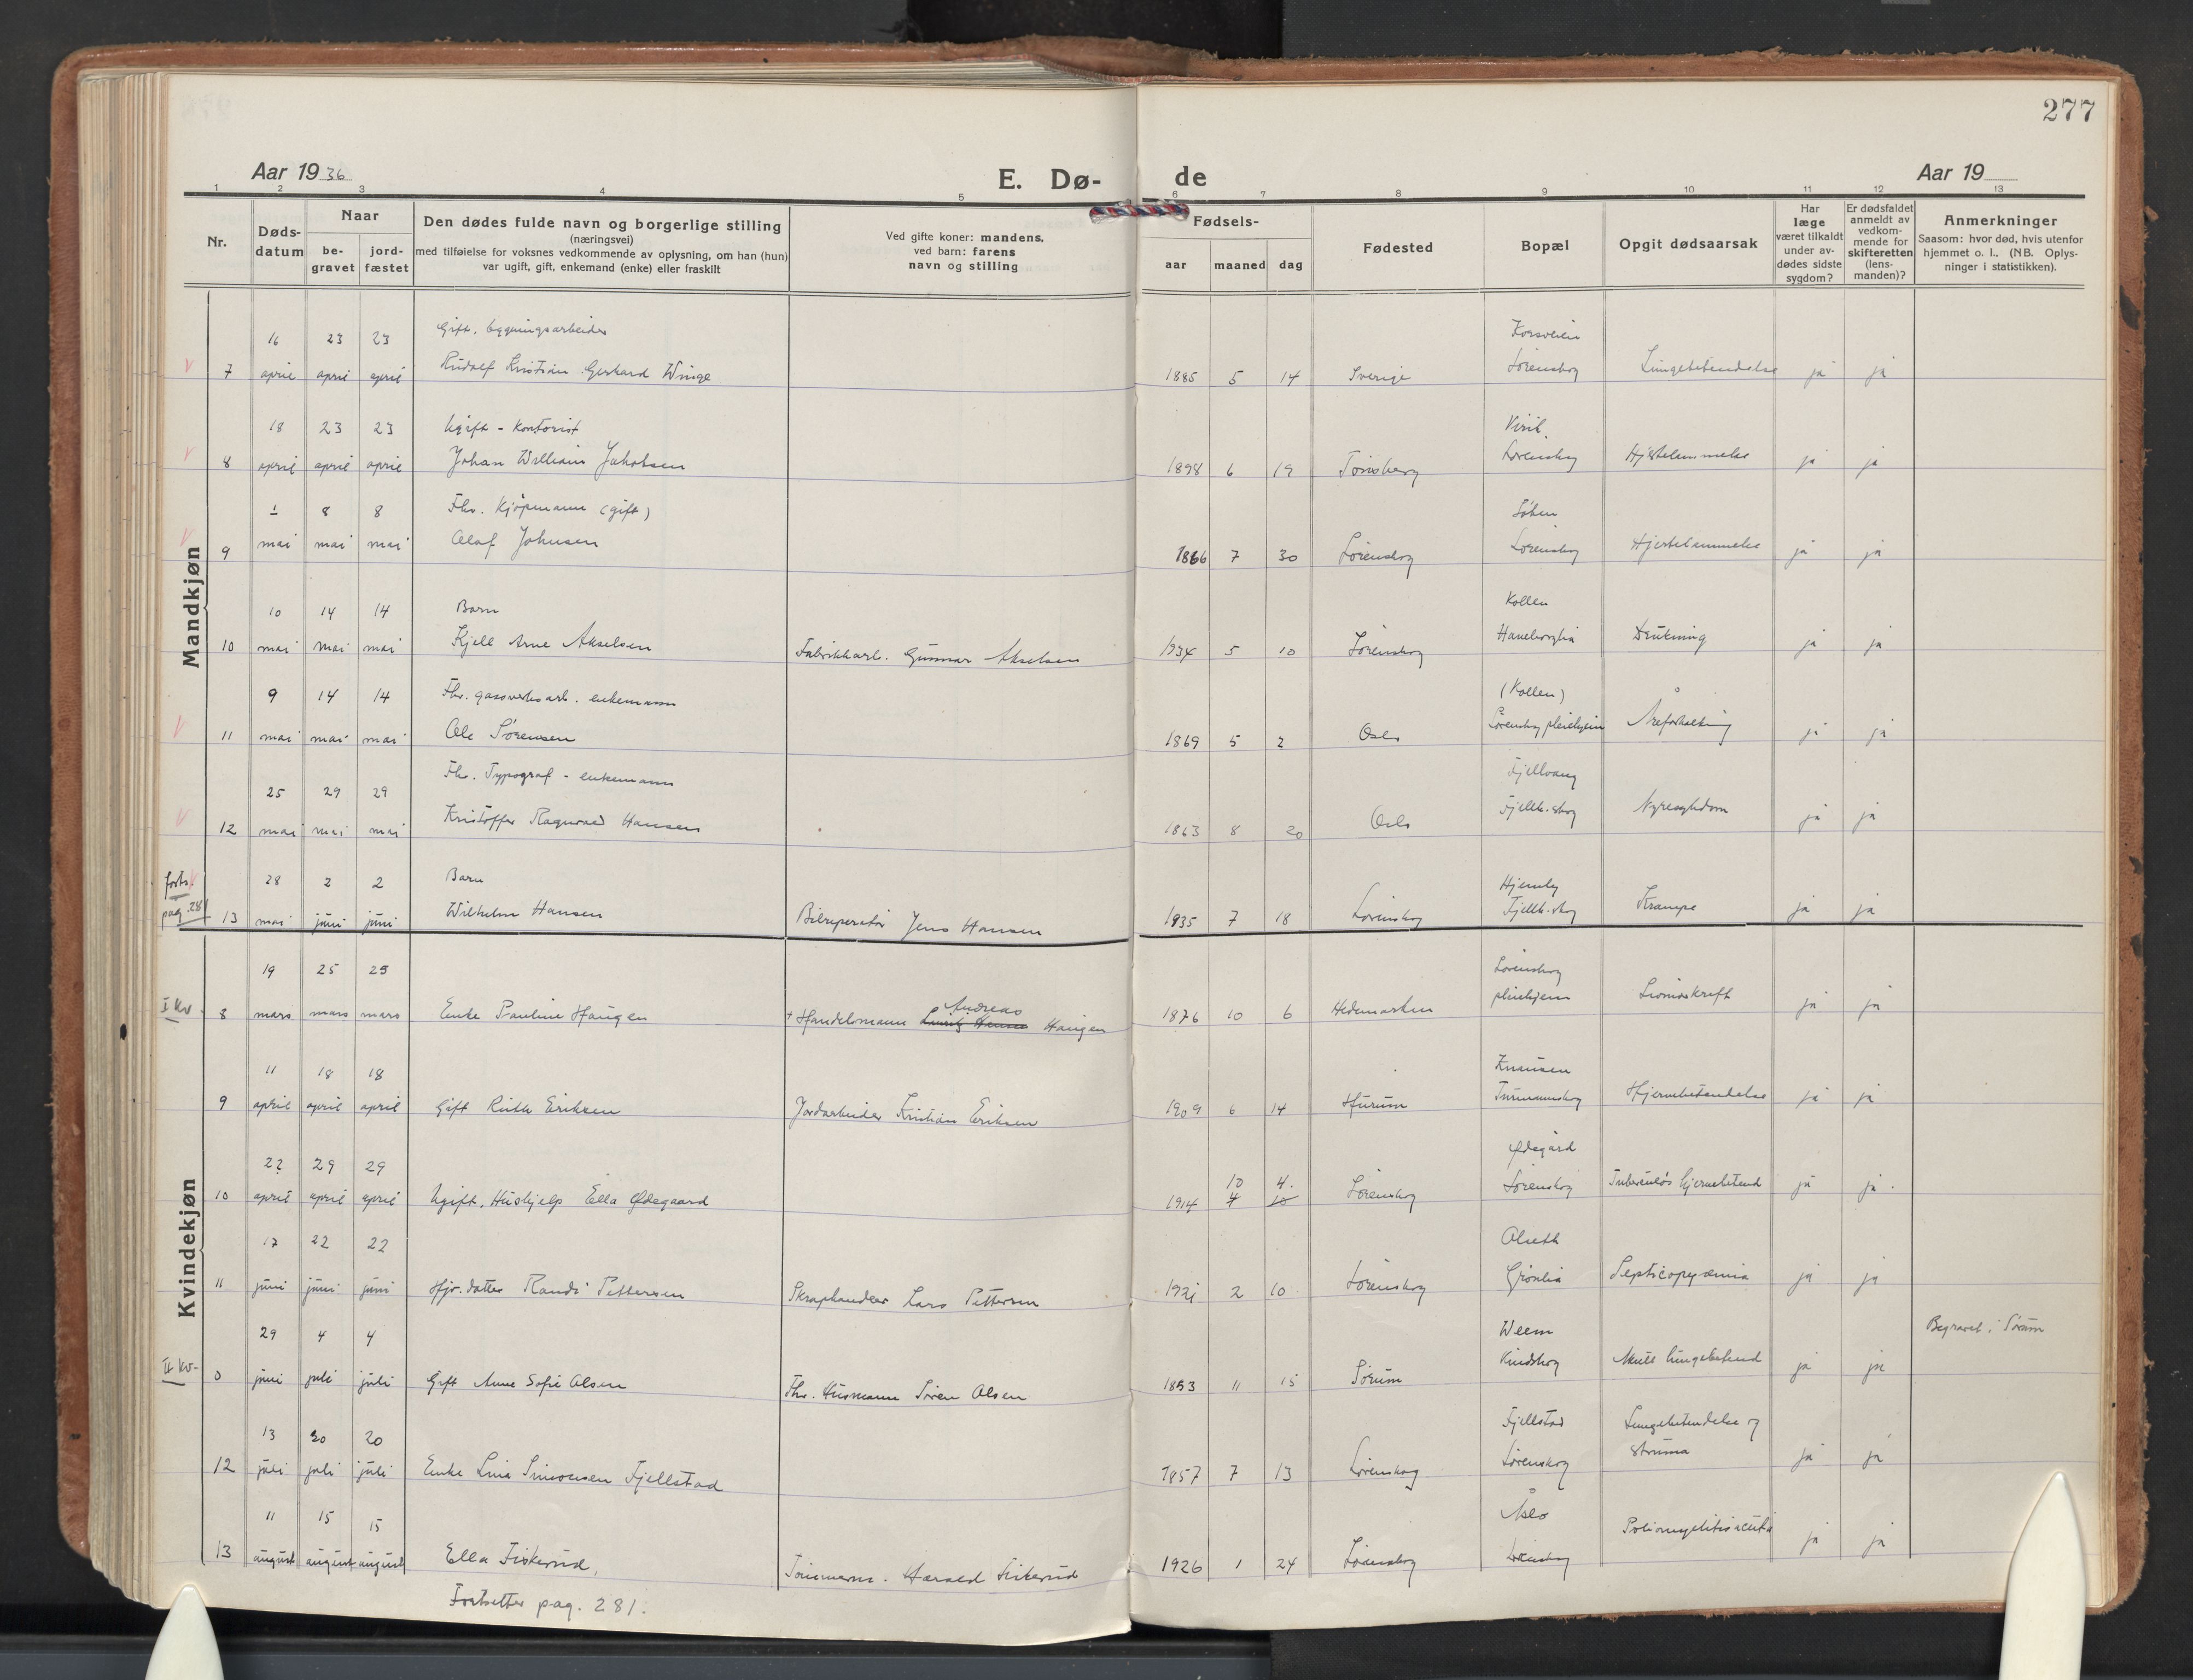 277
Aar 1936
E. Dø-
de
Aar 19
1 2 3 4 5 6 7 8 9 10 11 12 13
Nr.
Døds-
datum
Naar
be-
gravet
jord-
fæstet
Den dødes fulde navn og borgerlige stilling
(næringsvei)
med tilføielse for voksnes vedkommende av oplysning, om han (hun)
var ugift, gift, enkemand (enke) eller fraskilt
Ved gifte koner: mandens,
ved barn: farens
navn og stilling
Fødsels-
aar maaned dag
Fødested
Bopæl
Opgit dødsaarsak
Har
læge
været tilkaldt
under av-
dødes sidste
sygdom?
Er dødsfaldet
anmeldt av
vedkom-
mende for
skifteretten
(lens-
manden)?
Anmerkninger
Saasom: hvor død, hvis utenfor
hjemmet o. l., (NB. Oplys-
ninger i statistikken).
Mandkjøn
16 23 23 Gift. bygningsarbeider Korsveien
7 april april april Rudolf Kristian Gerhard Winge 1885 5 14 Sverige Lørenskog Lungebetendelse ja ja
18 23 23 Ugift - Kontorist
8 april april april Johan William Jakobsen 1898 6 19 Tønsberg Lørenskog Hjertelammelse ja ja
1 8 8 Fhv. Kjøpmann (gift)
9 mai mai mai Olaf Johnsen 1866 7 30 Lørenskog Lørenskog Hjertelammelse ja ja
10 14 14 Barn Kollen
10 mai mai mai Kjell Arne Akselsen Fabrikkarb. Gunnar Akselsen 1934 5 10 Lørenskog Haneborglia Drukning ja ja
9 14 14 Fhv. gassverksarb. enkemann (Kollen)
11 mai mai mai Ole Sørensen 1869 5 2 Oslo Lørenskog pleiehjem Åreforkalkning ja ja
25 29 29 Fhv. Typograf - enkemann Fjellvang
12 mai mai mai Kristoffer Ragnvald Hansen 1863 8 20 Oslo Fjellh.-skog Nyresykdom ja ja
forts.
pag. 281
28 2 2 Barn Hjemly
13 mai juni juni Wilhelm Hansen Bilreperatør Jens Hansen 1935 7 18 Lørenskog Fjellh.-skog Krampe ja ja
Kvindekjøn
19 25 25 Andreas Lørenskog
I Kv. 8 mars mars mars Enke Pauline Haugen + Handelsmann Hansen Haugen 1876 10 6 Hedemarken pleiehjem Livmorkreft ja ja
11 18 18 Knausen
9 april april april Gift Ruth Eriksen Jordarbeider Kristian Eriksen 1909 6 14 Hurum Thurmannskog Hjernebetendelse ja ja
22 29 29 10 4. Ødegård
10 april april april Ugift. Hushjelp Ella Ødegaard 1914 4 10 Lørenskog Lørenskog Tuberculøs hjernebetend ja ja.
17 22 22
11 juni juni juni Hjv. datter Randi Pettersen Skraphandler Lars Pettersen 1921 2 10 Lørenskog Grønlia Septicopyæmia ja ja
29 4 4 Weem Begravet i Sørum
II Kv. 0 juni juli juli Gift Anne Sofie Olsen Fhv. Husmann Søren Olsen 1853 11 15 Sørum Vindskog Akutt lungebetend ja ja
13 20 20 Fjellstad Lungebetendelse og
12 juli juli juli Enke Lina Simonsen Fjellstad 1857 7 13 Lørenskog Lørenskog struma ja ja
11 15 15
13 august august august Ella Fiskerud, Tømmerm. Harald Fiskerud 1926 1 24 Lørenskog Lørenskog Poliomyelitis acuta ja ja
Fortsetter pag. 281.